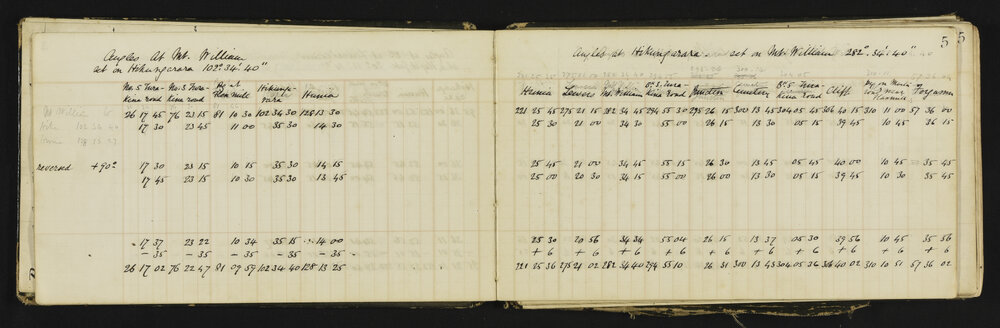 Angles At Mt. William
set on Hikungarara 102° 34' 40"
No. 5 Tura- No. 3 Tura- Hikunga- Hunia
kina road kina road Flax mill rara
26 17 45 76 23 15 81 10 30 102 34 30 128 13 30
17 30 23 45 11 00 35 30 14 30
reversed +90° 17 30 23 15 10 15 35 30 14 15
17 45 23 15 10 30 35 30 13 45
17 37 23 22 10 34 35 15 14 00
- 35 - 35 - 35 - 35 - 35
26 17 02 76 22 47 81 09 59 102 34 40 128 13 25
5 5
Angles at Hikungarara set on Mt. William 282° 34' 40"
Hunia Mt. William Cemetery Cliff Fergusson
kina road kina road
221 25 45 275 21 15 282 34 45 294 55 30 295 26 15 300 13 45 304 05 45 306 40 15 310 11 00 57 36 00
25 30 21 00 34 30 55 00 26 15 13 30 05 15 39 45 10 45 36 15
25 45 21 00 34 45 55 15 26 30 13 45 05 45 40 00 10 45 35 45
25 00 20 30 34 15 55 00 26 00 13 30 05 15 39 45 10 30 35 45
25 30 20 56 34 34 55 04 26 15 13 37 05 30 39 56 10 45 35 56
+ 6 + 6 + 6 + 6 + 6 + 6 + 6 + 6 + 6 + 6
221 25 36 275 21 02 282 34 40 294 55 10 26 21 300 13 43 304 05 36 306 40 02 310 10 51 57 36 02